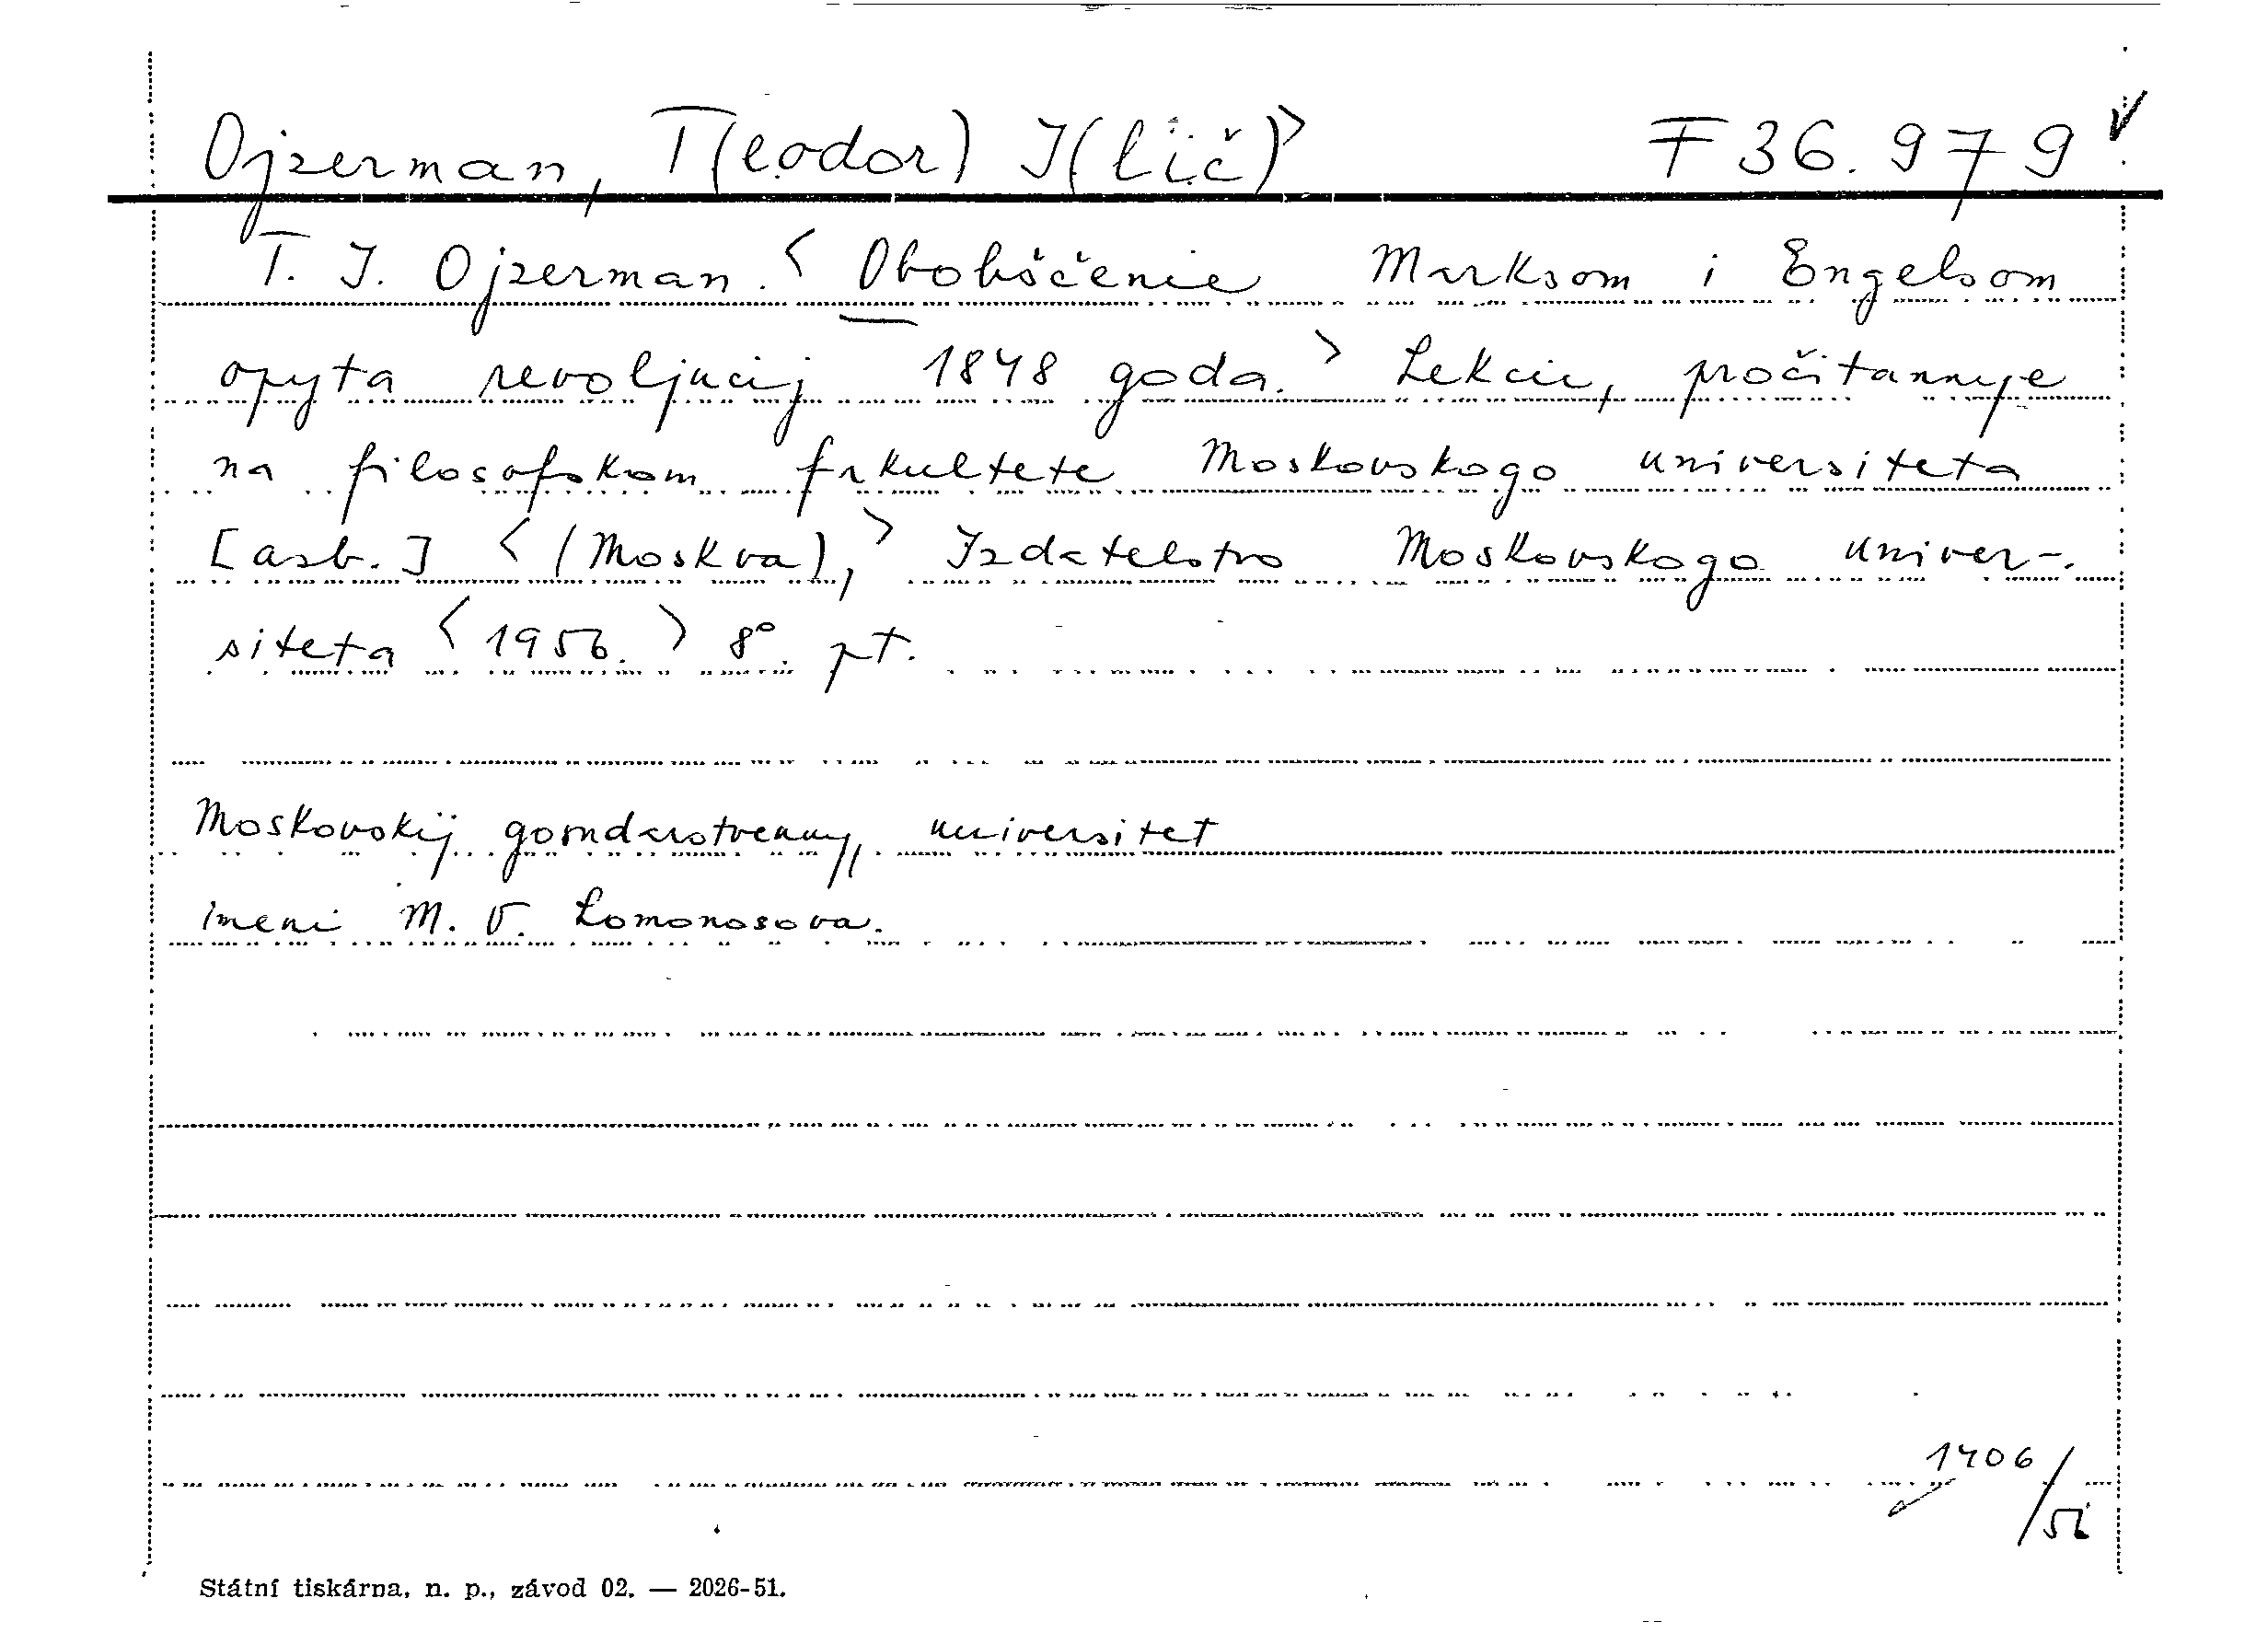 Ojzerman, T(eodor) I(l'ič)> F 36.979
T. I. Ojzerman. < Obobščenie Marksom i Engelsom
opyta revoljucij 1848 goda. > Lekcii, pročitannye
na filosofskom fakultete Moskovskogo universiteta
[asb.] < (Moskva), > Izdatelstvo Moskovskogo univer-
siteta < 1956. > 8° pt.
Moskovskij gosudarstvennyj universitet
imeni M. V. Lomonosova.
1406/
Státní tiskárna, n. p., závod 02. — 2026-51.